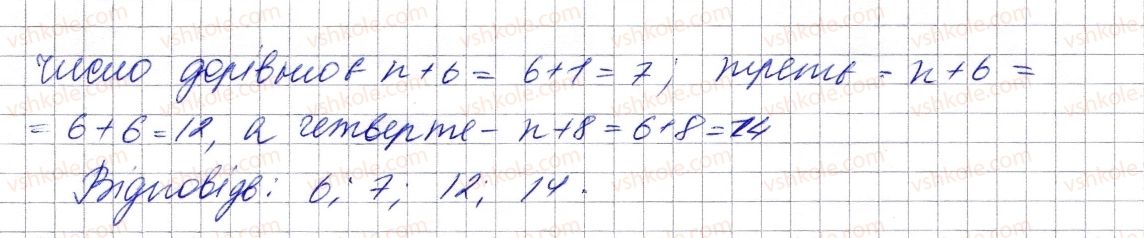 число дорівнює n + 6 = 6 + 1 = 7; третє - n + 6 =
= 6 + 6 = 12, а четверте - n + 8 = 6 + 8 = 14
Відповідь: 6; 7; 12; 14.